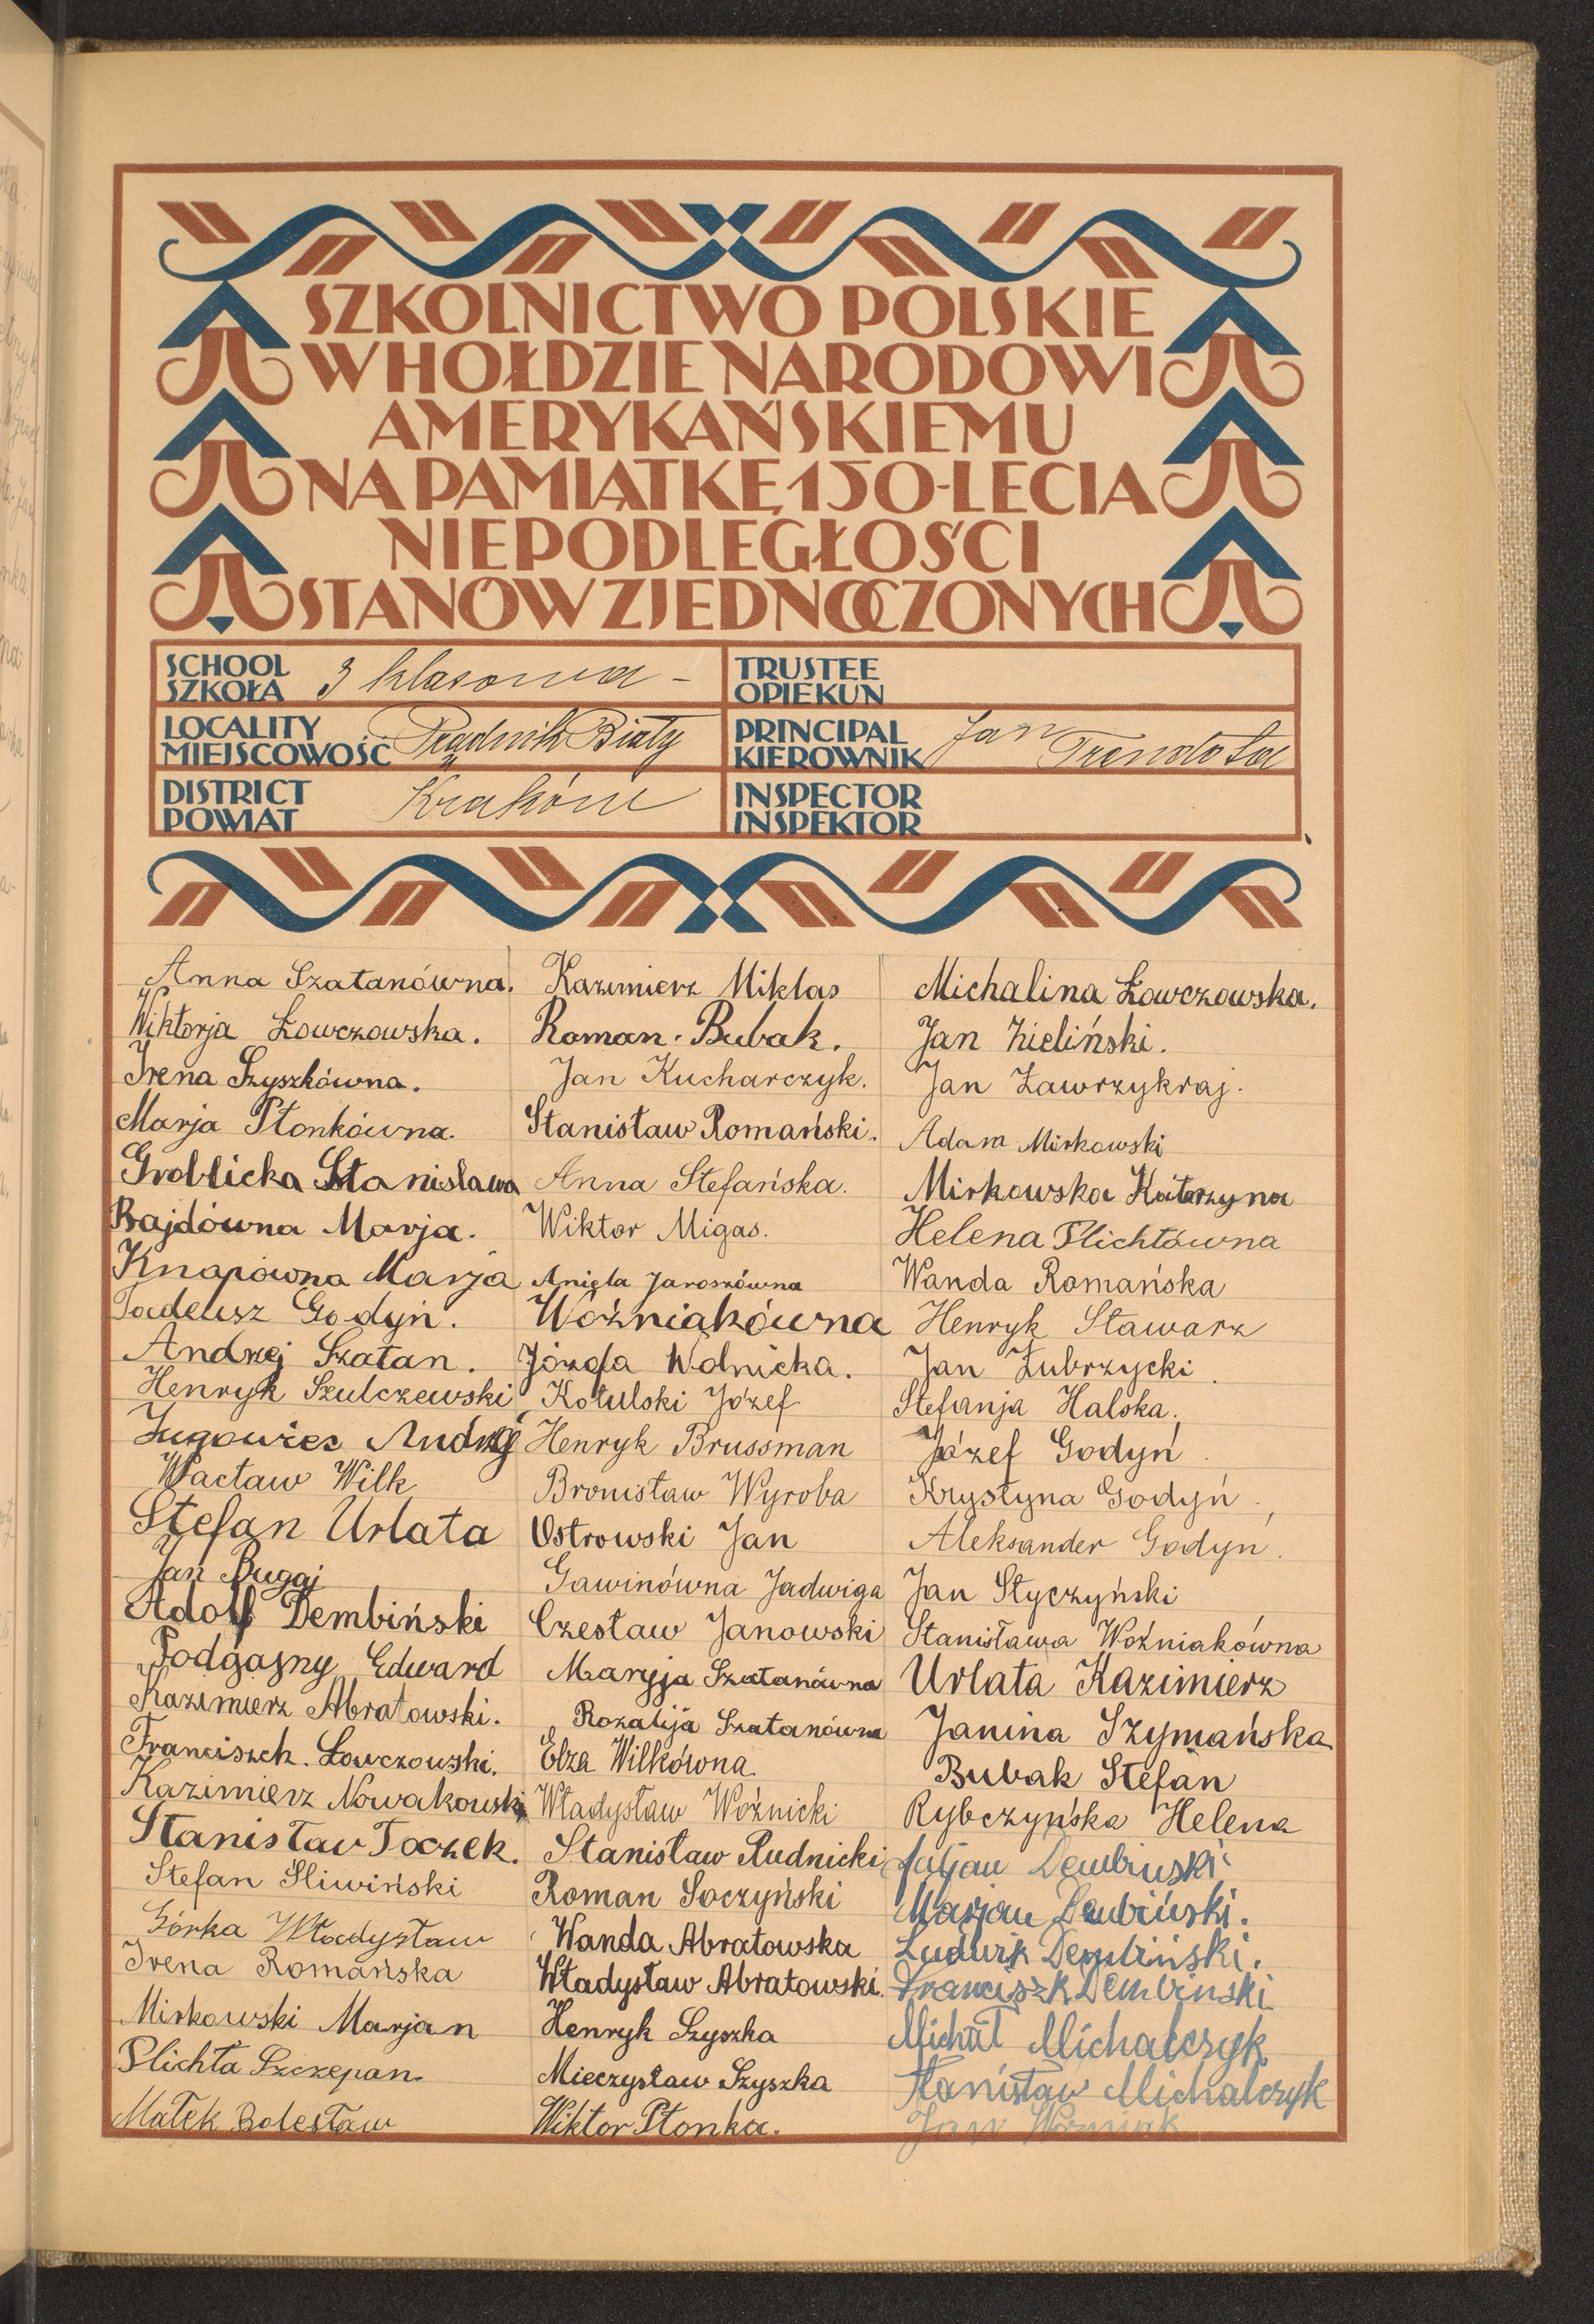 SZKOLNICTWO POLSKIE
W HOŁDZIE NARODOWI
AMERYKAŃSKIEMU
NA PAMIĄTKĘ 150-LECIA
NIEPODLEGŁOŚCI
STANÓW ZJEDNOCZONYCH
SCHOOL
SZKOŁA 3 klasowa -
TRUSTEE
OPIEKUN
LOCALITY
MIEJSCOWOŚĆ Prądnik Biały
PRINCIPAL
KIEROWNIK Jan Trendota
DISTRICT
POWIAT Kraków
INSPECTOR
INSPEKTOR
Anna Szatanówna.
Wiktorja Łowczowska.
Irena Szyszkówna.
Marja Płonkówna.
Groblicka Stanisława
Bajdówna Marja.
Knapówna Marja
Tadeusz Godyń.
Andrzej Szatan.
Henryk Szulczewski
Zugowiec Andrzej
Wacław Wilk
Stefan Urlata
Jan Bugaj
Adolf Dembiński
Podgajny Edward
Kazimierz Abratowski.
Franciszek. Łowczowski.
Kazimierz Nowakowski
Stanisław Toczek.
Stefan Śliwiński
Górka Władysław
Irena Romańska
Mirkowski Marjan
Plichta Szczepan.
Małek Bolesław
Kazimierz Miklas
Roman. Bubak.
Jan Kucharczyk.
Stanisław Romański.
Anna Stefańska.
Wiktor Migas.
Aniela Jaroszówna
Woźniakówna
Józefa Wolnicka.
Kotulski Józef
Henryk Brussman
Bronisław Wyroba
Ostrowski Jan
Gawinówna Jadwiga
Czesław Janowski
Maryja Szatanówna
Rozalija Szatanówna
Elza Wilkówna.
Władysław Woźnicki
Stanisław Rudnicki
Roman Soczyński
Wanda Abratowska
Władysław Abratowski.
Henryk Szyszka
Mieczysław Szyszka
Wiktor Płonka.
Michalina Łowczowska.
Jan Zieliński.
Jan Zawrzykraj.
Adam Mirkowski
Mirkowska Katarzyna
Helena Plichtówna
Wanda Romańska
Henryk Stawarz
Jan Zubrzycki.
Stefanja Halska.
Józef Godyń.
Krystyna Godyń.
Aleksander Godyń.
Jan Styczyński
Stanisława Woźniakówna
Urlata Kazimierz
Janina Szymańska
Bubak Stefan
Rybczyńska Helena
Juljan Dembiński
Marjan Dembiński.
Ludwik Dembiński.
Franciszk Dembinski
Michał Michalczyk
Stanisław Michalczyk
Jan Woźniak